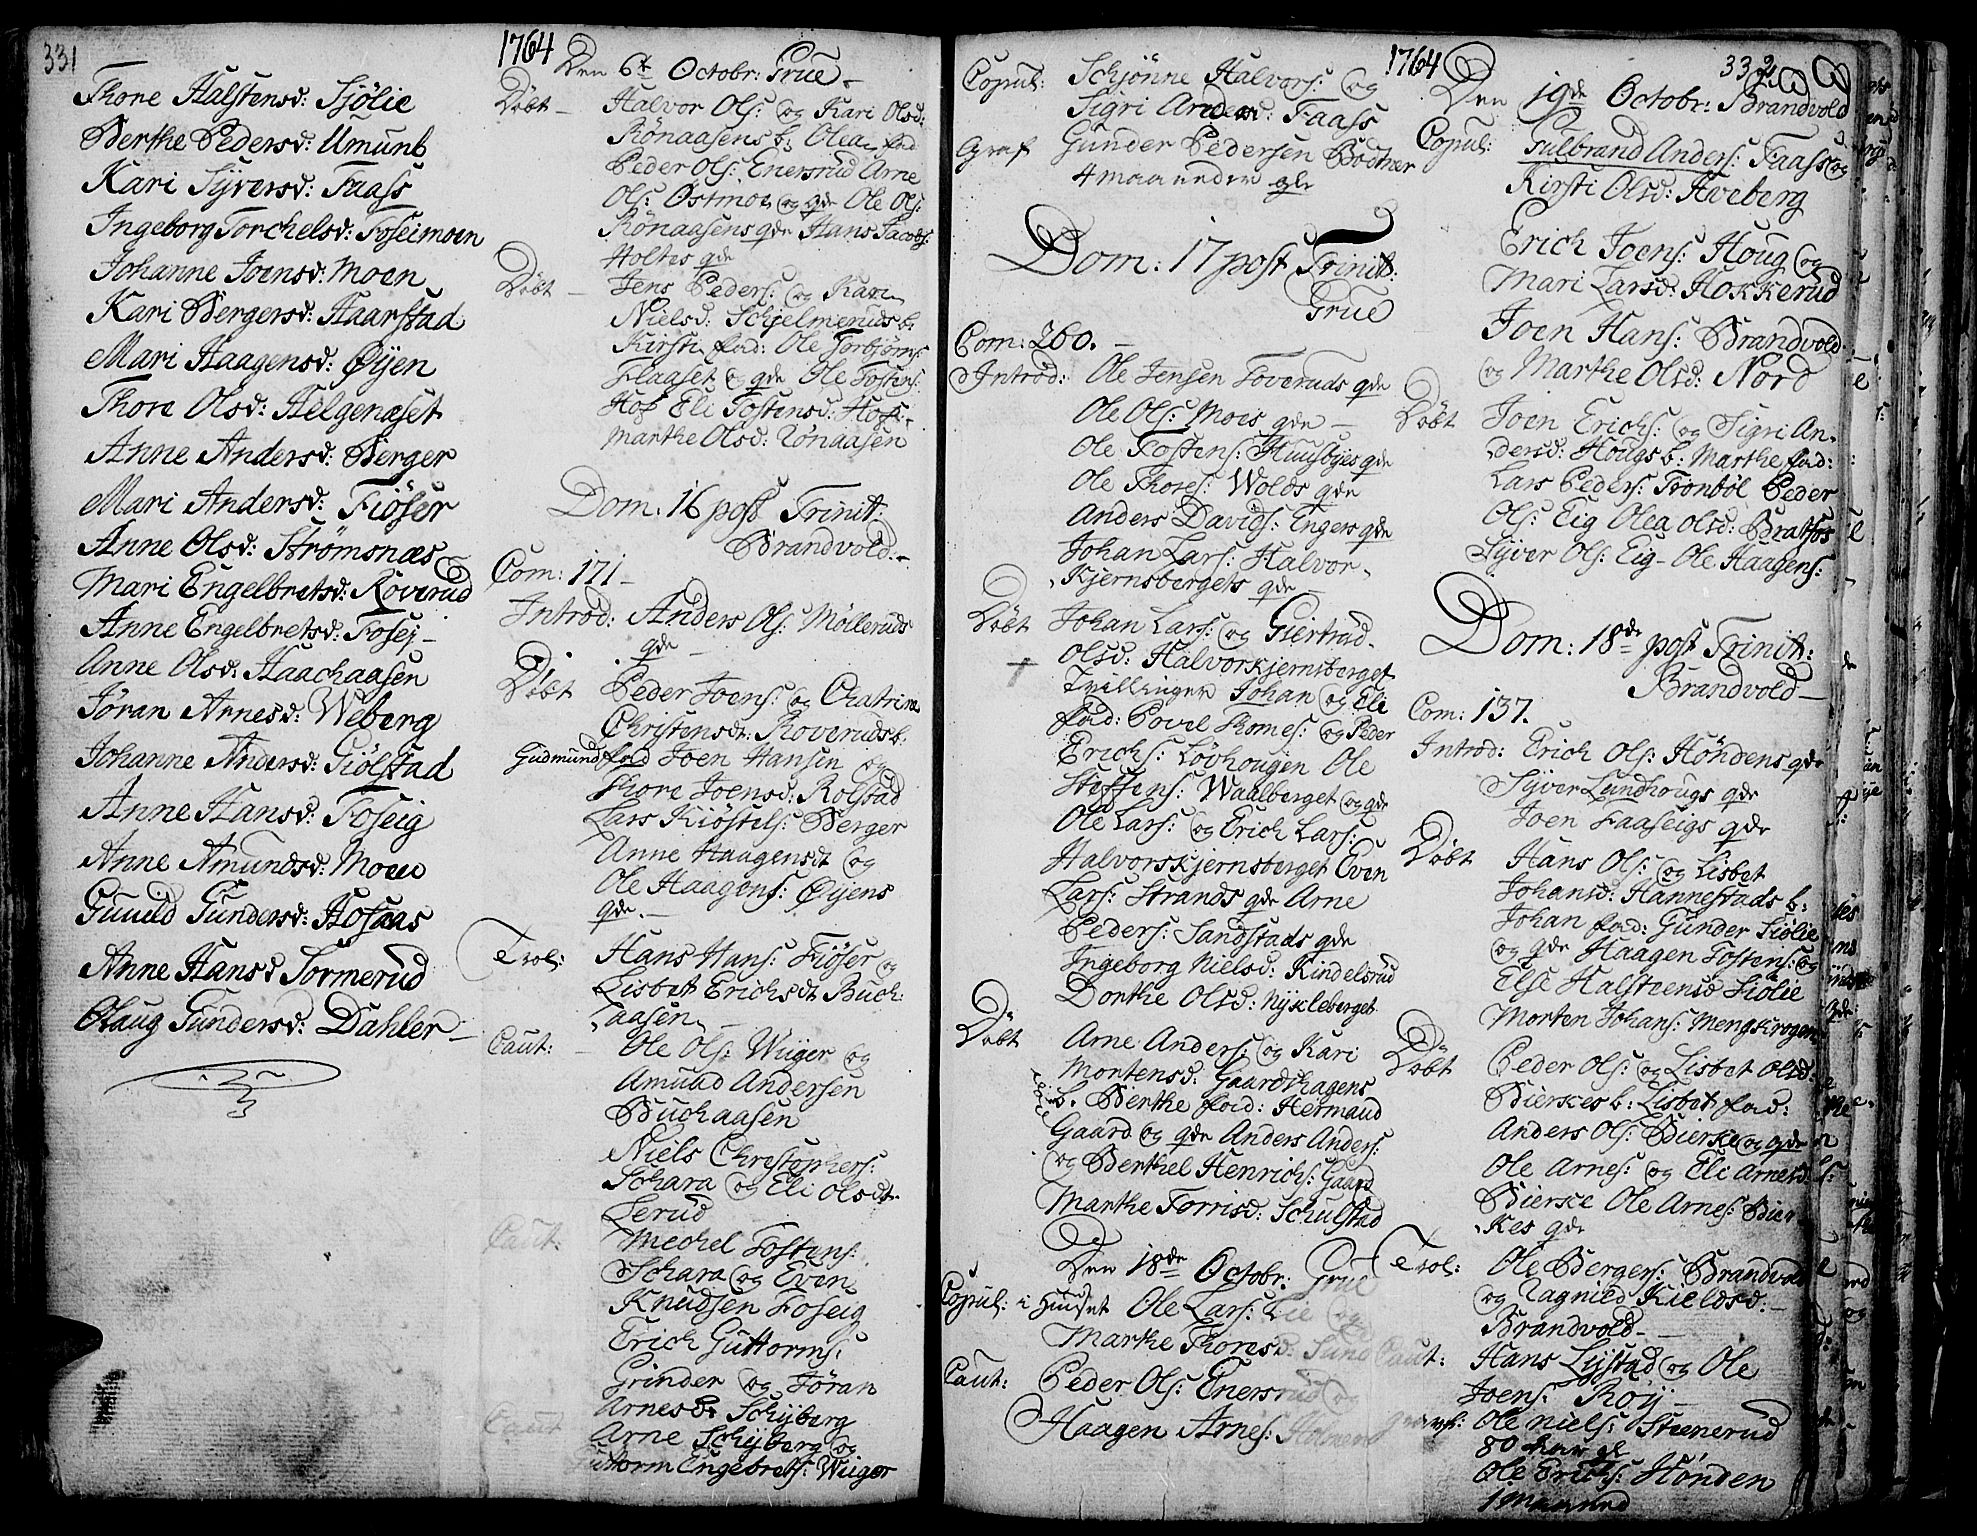 331
Thore Halstensd: Sjölie
Berthe Pedersd: Umunt
Kari Syversd: Faass
Ingeborg Torchelsd: Foseimoen
Johanne Joensd: Moen
Kari Bergersd: Haarstad
Mari Haagensd: Øyen
Thore Olsd: Helgenæset
Anne Andersd: Berger
Mari Andersd: Fiöser
Anne Olsd: Strömsnæs
Mari Engelbretsd: Roverud
Anne Engelbretsd: Fosej
Anne Olsd: Haachaasen
Jöran Arnesd: Weberg
Johanne Andersd: Giölstad
Anne Hansd: Foseig
Anne Amundsd: Moen
Gunild Gundersd: Hofaas
Anne Hansd Sormerud
Olaug Gundersd: Dahler
1764
Den 6te Octobr: Grue
Döbt Halvor Ols: og Kari Olsd:
Rönaasens b: Olea fad
Peder Ols: Enersrud Arne
Ols: Östmoe og qde Ole Ols:
Rönaasens qde Hans Jacobs:
Holtes qde
Döbt Jens Peders: og Kari
Nielsd: Schjelmeruds b:
Kirsti fad: Ole Torbjörns:
Flaaset og qde Ole Tostens:
Hof Eli Tostensd: Hof
Marthe Olsd: Rönaasen
Dom: 16 post Trinit:
Brandvold
Com: 171
Introd: Anders Ols: Mölleruds
qde
Döbt Peder Joens: og Chatrine
Christensdt: Roveruds b:
Gudmund fad Joen Hansen og
Thore Joensd: Rolstad
Lars Kiöstels: Berger
Anne Haagensdt og
Ole Haagens: Øyens
qde.
Trol: Hans Hans: Fiöser og
Lisbet Erichsdt Buch-
aasen
Caut: Ole Ols: Wiiger og
Amund Andersen
Buchaasen
Niels Christophers:
Schara og Eli Olsdt
Lerud
Caut: Mechel Tostens:
Schara og Even
Knudsen Foseig
Erich Guttorms:
Grinder og Jöran
Arnesd: Schyberg
Caut Arne Schyberg og
Guttorm Engebrets: Wiiger
Copul: Schjönne Halvors: og
Sigri Andersd: Faass
Graf Gunder Pedersen Bodtner
4 maaneder gl
Dom: 17 post Trinit:
Grue
Com: 260.
Introd: Ole Jensen Toveruds qde
Ole Ols: Moes qde
Ole Tostens: Huusbyes qde
Ole Thores: Wolds qde
Anders Davids: Engers qde
Johan Lars: Halvor-
Kjernsbergets qde
Döbt Johan Lars: og Giertrud
Olsd: Halvorskjernsberget
Tvillinger Johan og Eli
fad: Povel Thomes: og Peder
Erichs: Lövhougen Ole
Steffens: Waalberget og qde
Ole Lars: og Erich Lars:
Halvorskjernsberget Even
Lars: Strands qde Arne
Peders: Sandstads qde
Ingeborg Nielsd: Kindelsrud
Dorthe Olsd: Nyckleberget
Döbt Arne Anders: og Kari
Mortensd: Gaardshagens
b. Berthe fad: Hermand
Gaard og qde Anders Anders:
og Berthel Henrichs: Gaard
Marthe Torrisd: Schulstad
Den 18de Octobr: Grue
Copul: i Huuset Ole Lars: Lie og
Marthe Thoresd: Sund
Caut: Peder Ols: Enersrud og
Haagen Arnes: Holmen
1764 332
Den 19de Octobr: Brandvold
Copul: Gulbrand Anders: Faass og
Kirsti Olsd: Aveberg
Erich Joens: Houg og
Mari Larsd: Hokkerud
Joen Hans: Brandvold
og Marthe Olsd: Nord
Döbt Joen Erichs: og Sigri An-
dersd: Hougs b: Marthe fad:
Lars Peders: Trontböl Peder
Ols: Eig Olea Olsd: Bratfos
Syver Ols: Eig Ole Haagens:
Dom: 18de post Trinit:
Brandvold
Com: 137.
Introd: Erich Ols: Höndens qde
Syver Lundhougs qde
Joen Faaseigs qde
Döbt Hans Ols: og Lisbet
Johansd: Hannestads b:
Johan fad: Gunder Siölie
og qde Haagen Tostens: og
Else Halsteensd Siölie
Morten Johans: Mengkrogen
Döbt Peder Ols: og Lisbet Olsd:
Bierkes b: Lisbet fad:
Anders Ols: Bierke og qde
Ole Arnes: og Eli Arnesd:
Bierke Ole Arnes: Bier-
kes qde
Trol: Ole Bergers: Brandvold
og Ragnild Kieldsd:
Brandvold
Caut: Hans Lystad og Ole
Joens: Roy
Ole Niels: Steenerud
80 Aar gl
Ole Erichs: Hönden
1 maaned